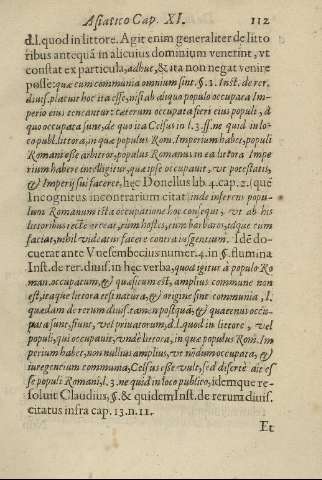 Asiatico Cap. XI. 112
d.l. quod in littore. Agit enim generaliter de litto
ribus antequã in alicuius dominium venerint, vt
constat ex particula, adhuc, & ita non negat venire
posse: quæ cum communia omnium sint. §. 1. Inst. de rer.
diuis. placuit hoc ita esse, nisi ab aliquo populo occupata Im-
perio eius teneantur: ceterum occupata fieri eius populi, à
quo occupata sunt, de quo ita Celsus in l. 3. ff. ne quid in lo-
co publ. littora, in quæ populus Rom. Imperium habet, populi
Romani esse arbitror, populus Romanus in ea littora Impe
rium habere intelligitur, quæ ipse occupauit, vt potestatis,
& Imperij sui faceret, hęc Donellus lib. 4. cap. 2. (quē
Incognitus in contrarium citat) inde inferens popu-
lum Romanum ista occupatione hoc consequi, vt ab his
littoribus recte arceat, cum hostes, cum barbaros, idque cum
faciat, nihil videatur facere contra ius gentium. Idē do-
cuerat ante Vuesembecius numer. 4. in §. flumina
Inst. de rer. diuis. in hęc verba, quod igitur à populo Ro
man. occupatum, & quasi cum est, amplius commune non
est, itaque littora etsi natura, & origine sint communia, l.
quædam de rerum diuis. tamen postquã, & quatenus occu-
pata sunt, fiunt, vel priuatorum, d. l. quod in littore, vel
populi, qui occupauit, vnde littora, in quæ populus Rom. Im
perium habet, non nullius amplius, vt nõdum occupata, &
iure gentium communia, Celsus esse vult, sed disertè ait es
se populi Romani, l. 3. ne quid in loco publico, idemque re-
soluit Claudius, §. & quidem Inst. de rerum diuis.
citatus infra cap. 13. n. 11.
Et